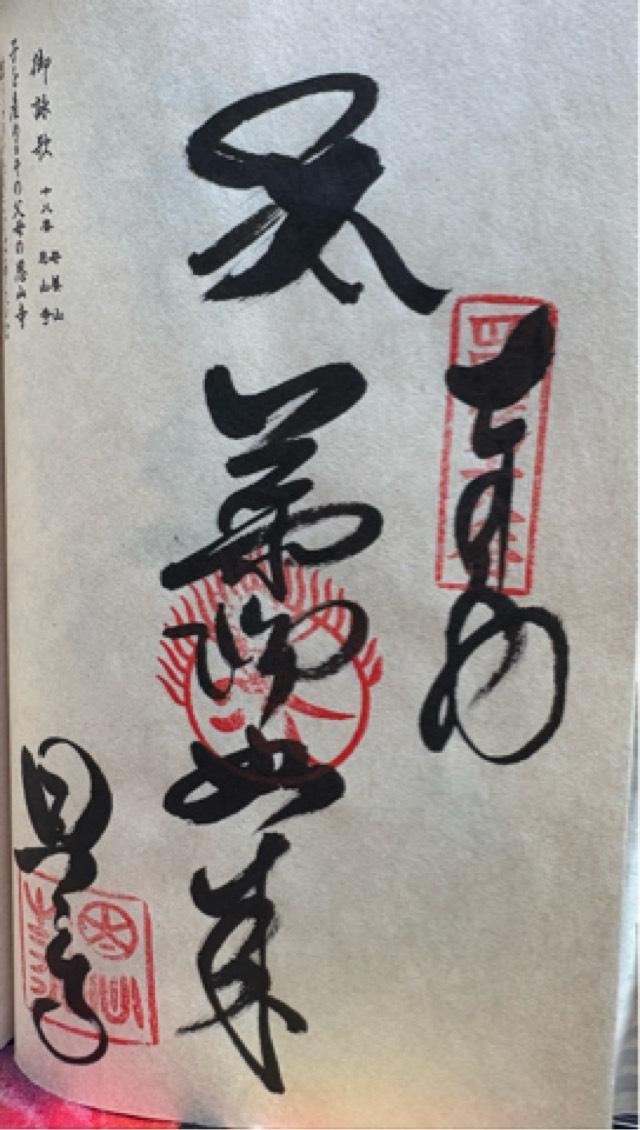 奉納
薬師如来
恩山寺
御詠歌 十八番 母養山 恩山寺
子を産めるその父母の恩山寺